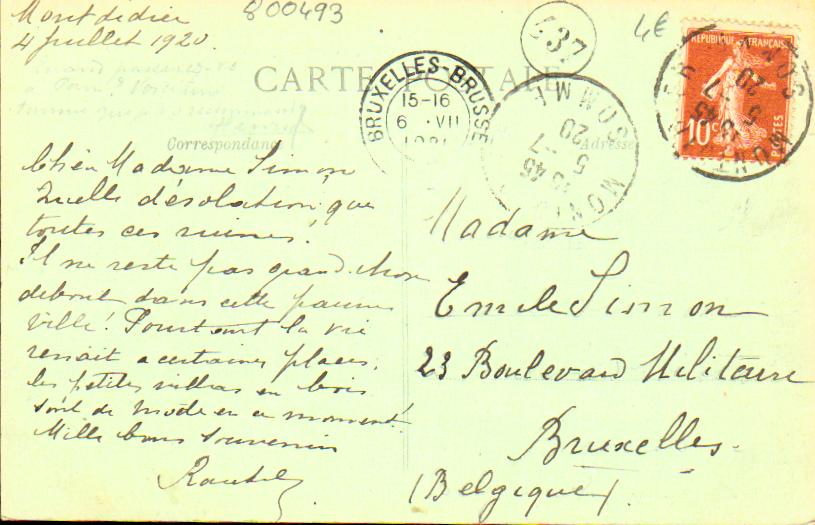 Montdidier
4 Juillet 1920.
800493
4€
437
CARTE POSTALE
BRUXELLES-BRUSSEL
15-16
6 VII
MONTDIDIER SOMME
15 45
5 -7
20
REPUBLIQUE FRANÇAISE
10
POSTES
Correspondance
Adresse
Chère Madame Simon
Quelle désolation que
toutes ces ruines!
Il ne reste pas grand chose
debout dans cette pauvre
ville! Pourtant la vie
renait a certaines places.
les petites villas en bois
sont de mode en ce moment!
Mille bons souvenirs
Madame
Emile Simon
23 Boulevard Militaire
Bruxelles.
(Belgique)